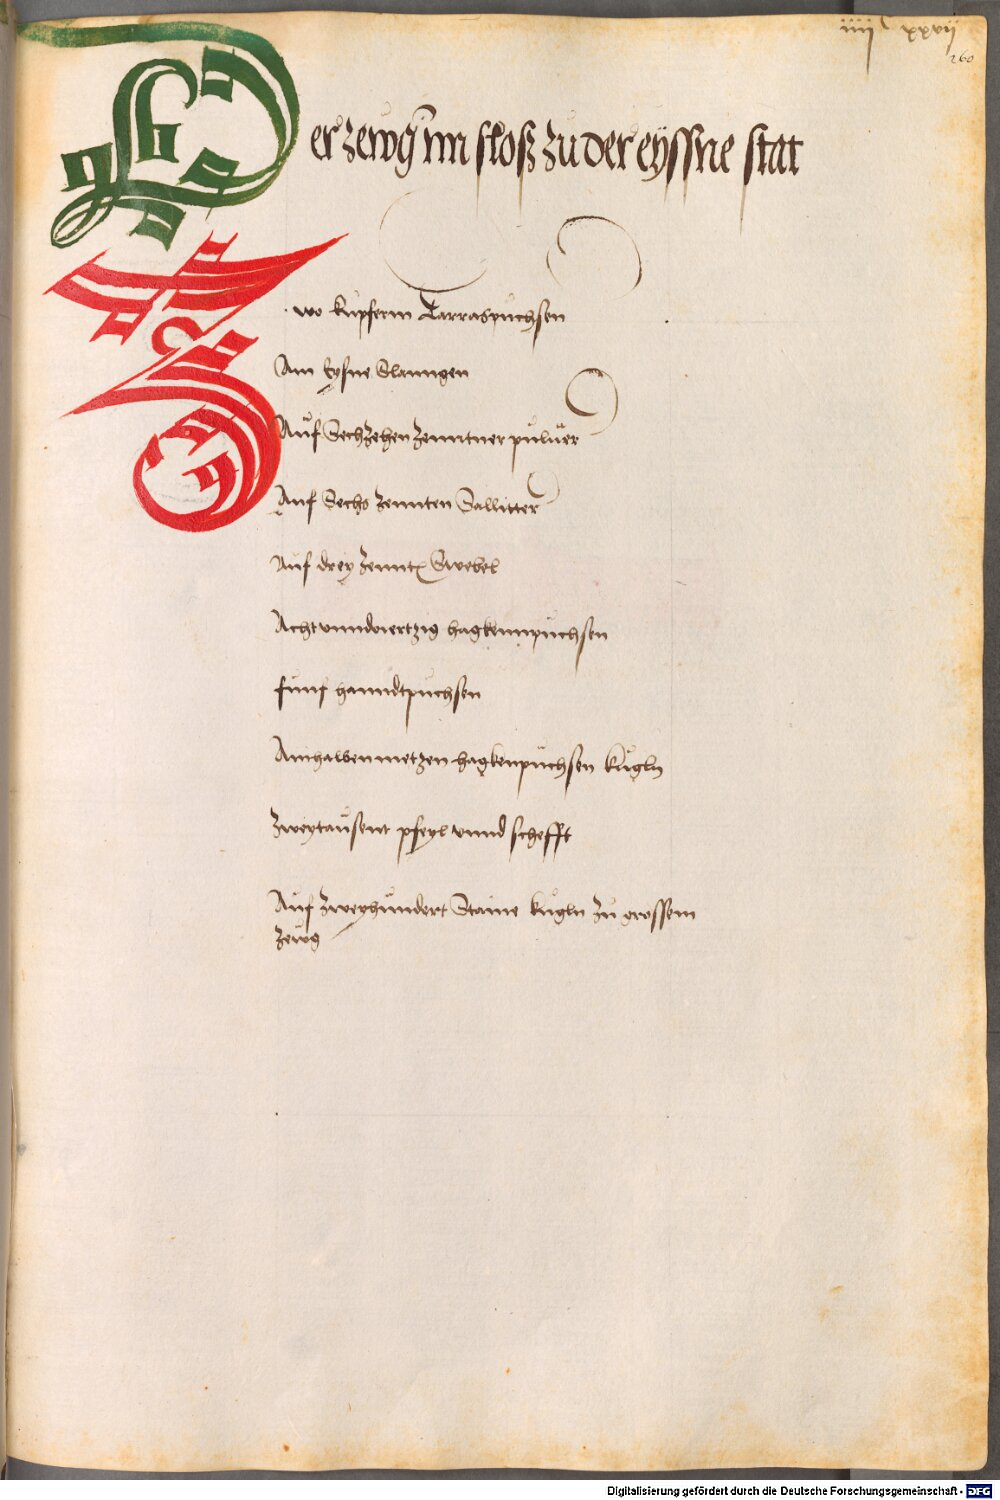 iiijᶜ xxvij
260
Der zewg im sloß zu der eyssne stat
Zwo kupferin Tarraspuchsen
Ain Eysne Slanngen
Auf Sechzehen zenntner puluer
Auf Sechs zennten Salliter
Auf drey zennt Swebel
Acht vnnd viertzig hagkennpuchsen
funf hanndtpuchsen
Ain halben metzen hagkenpuchsen kugln
Zweytausent pfeyl vnnd schefft
Auf zweyhundert Staine kugln zu grossem
zewg
Digitalisierung gefördert durch die Deutsche Forschungsgemeinschaft - DFG